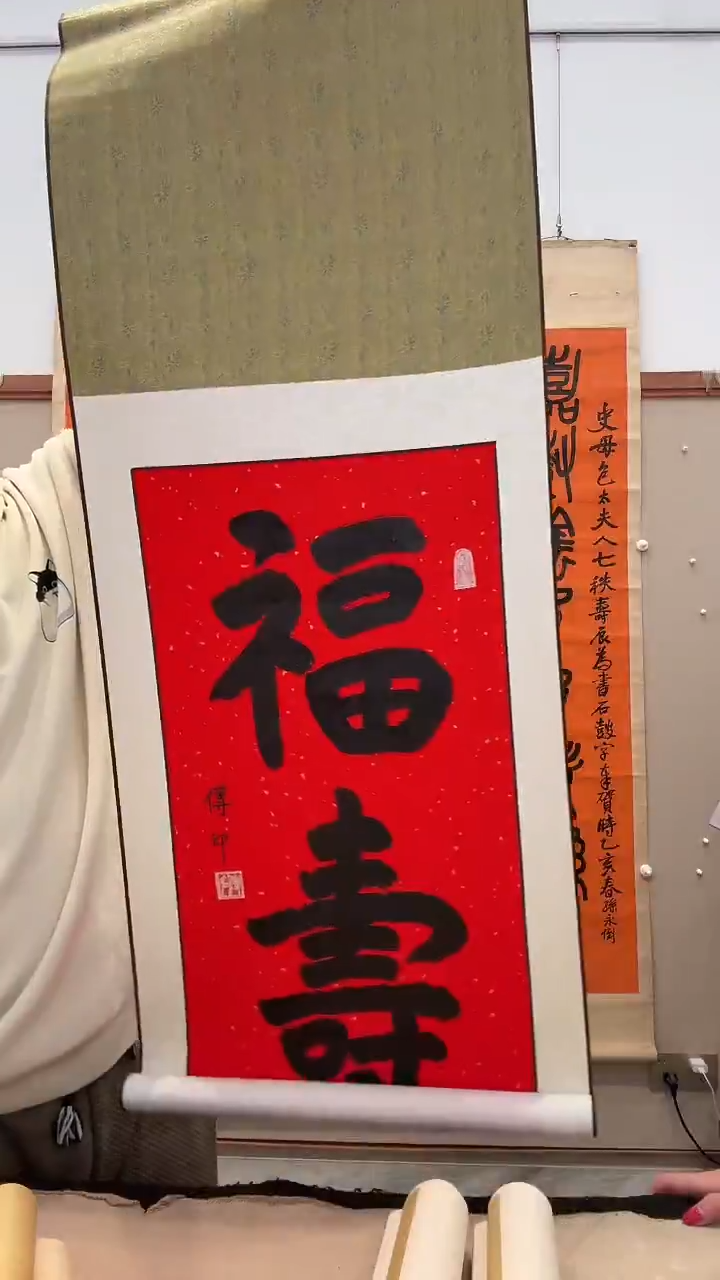 福壽
傳印
史母包太夫人七秩壽辰為書石鼓字奉贺時乙亥春孫永